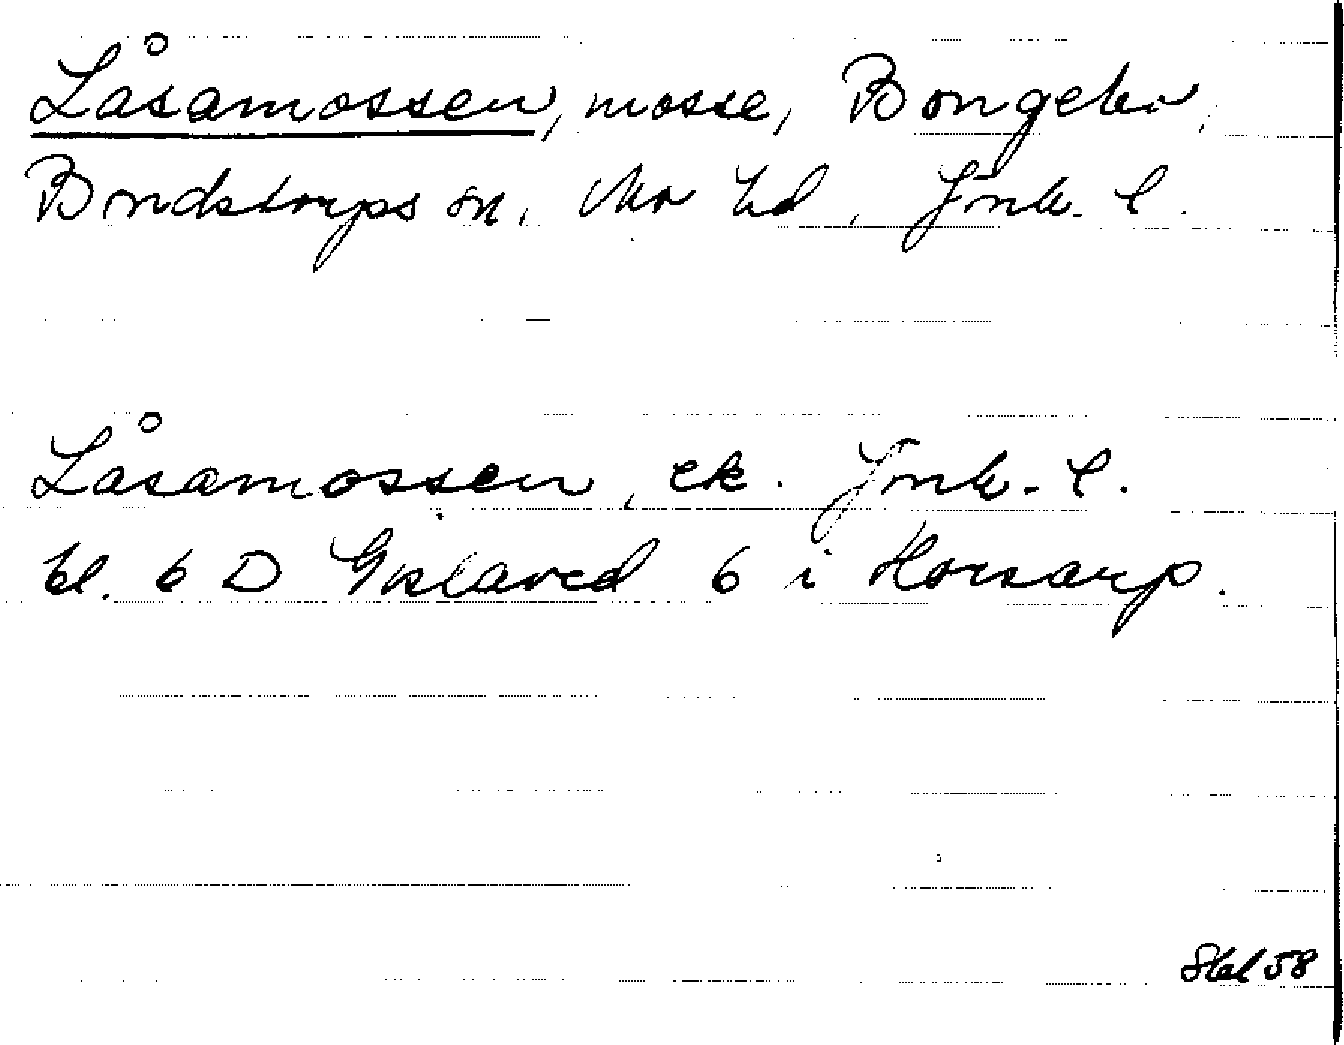 Låsamossen, mosse, Bongebo,
Bondstorps sn, Mo hd, Jönk. l.
Låsamossen, ek. Jönk. l.
bl. 6 D Gislaved 6 i Horsarp.
58